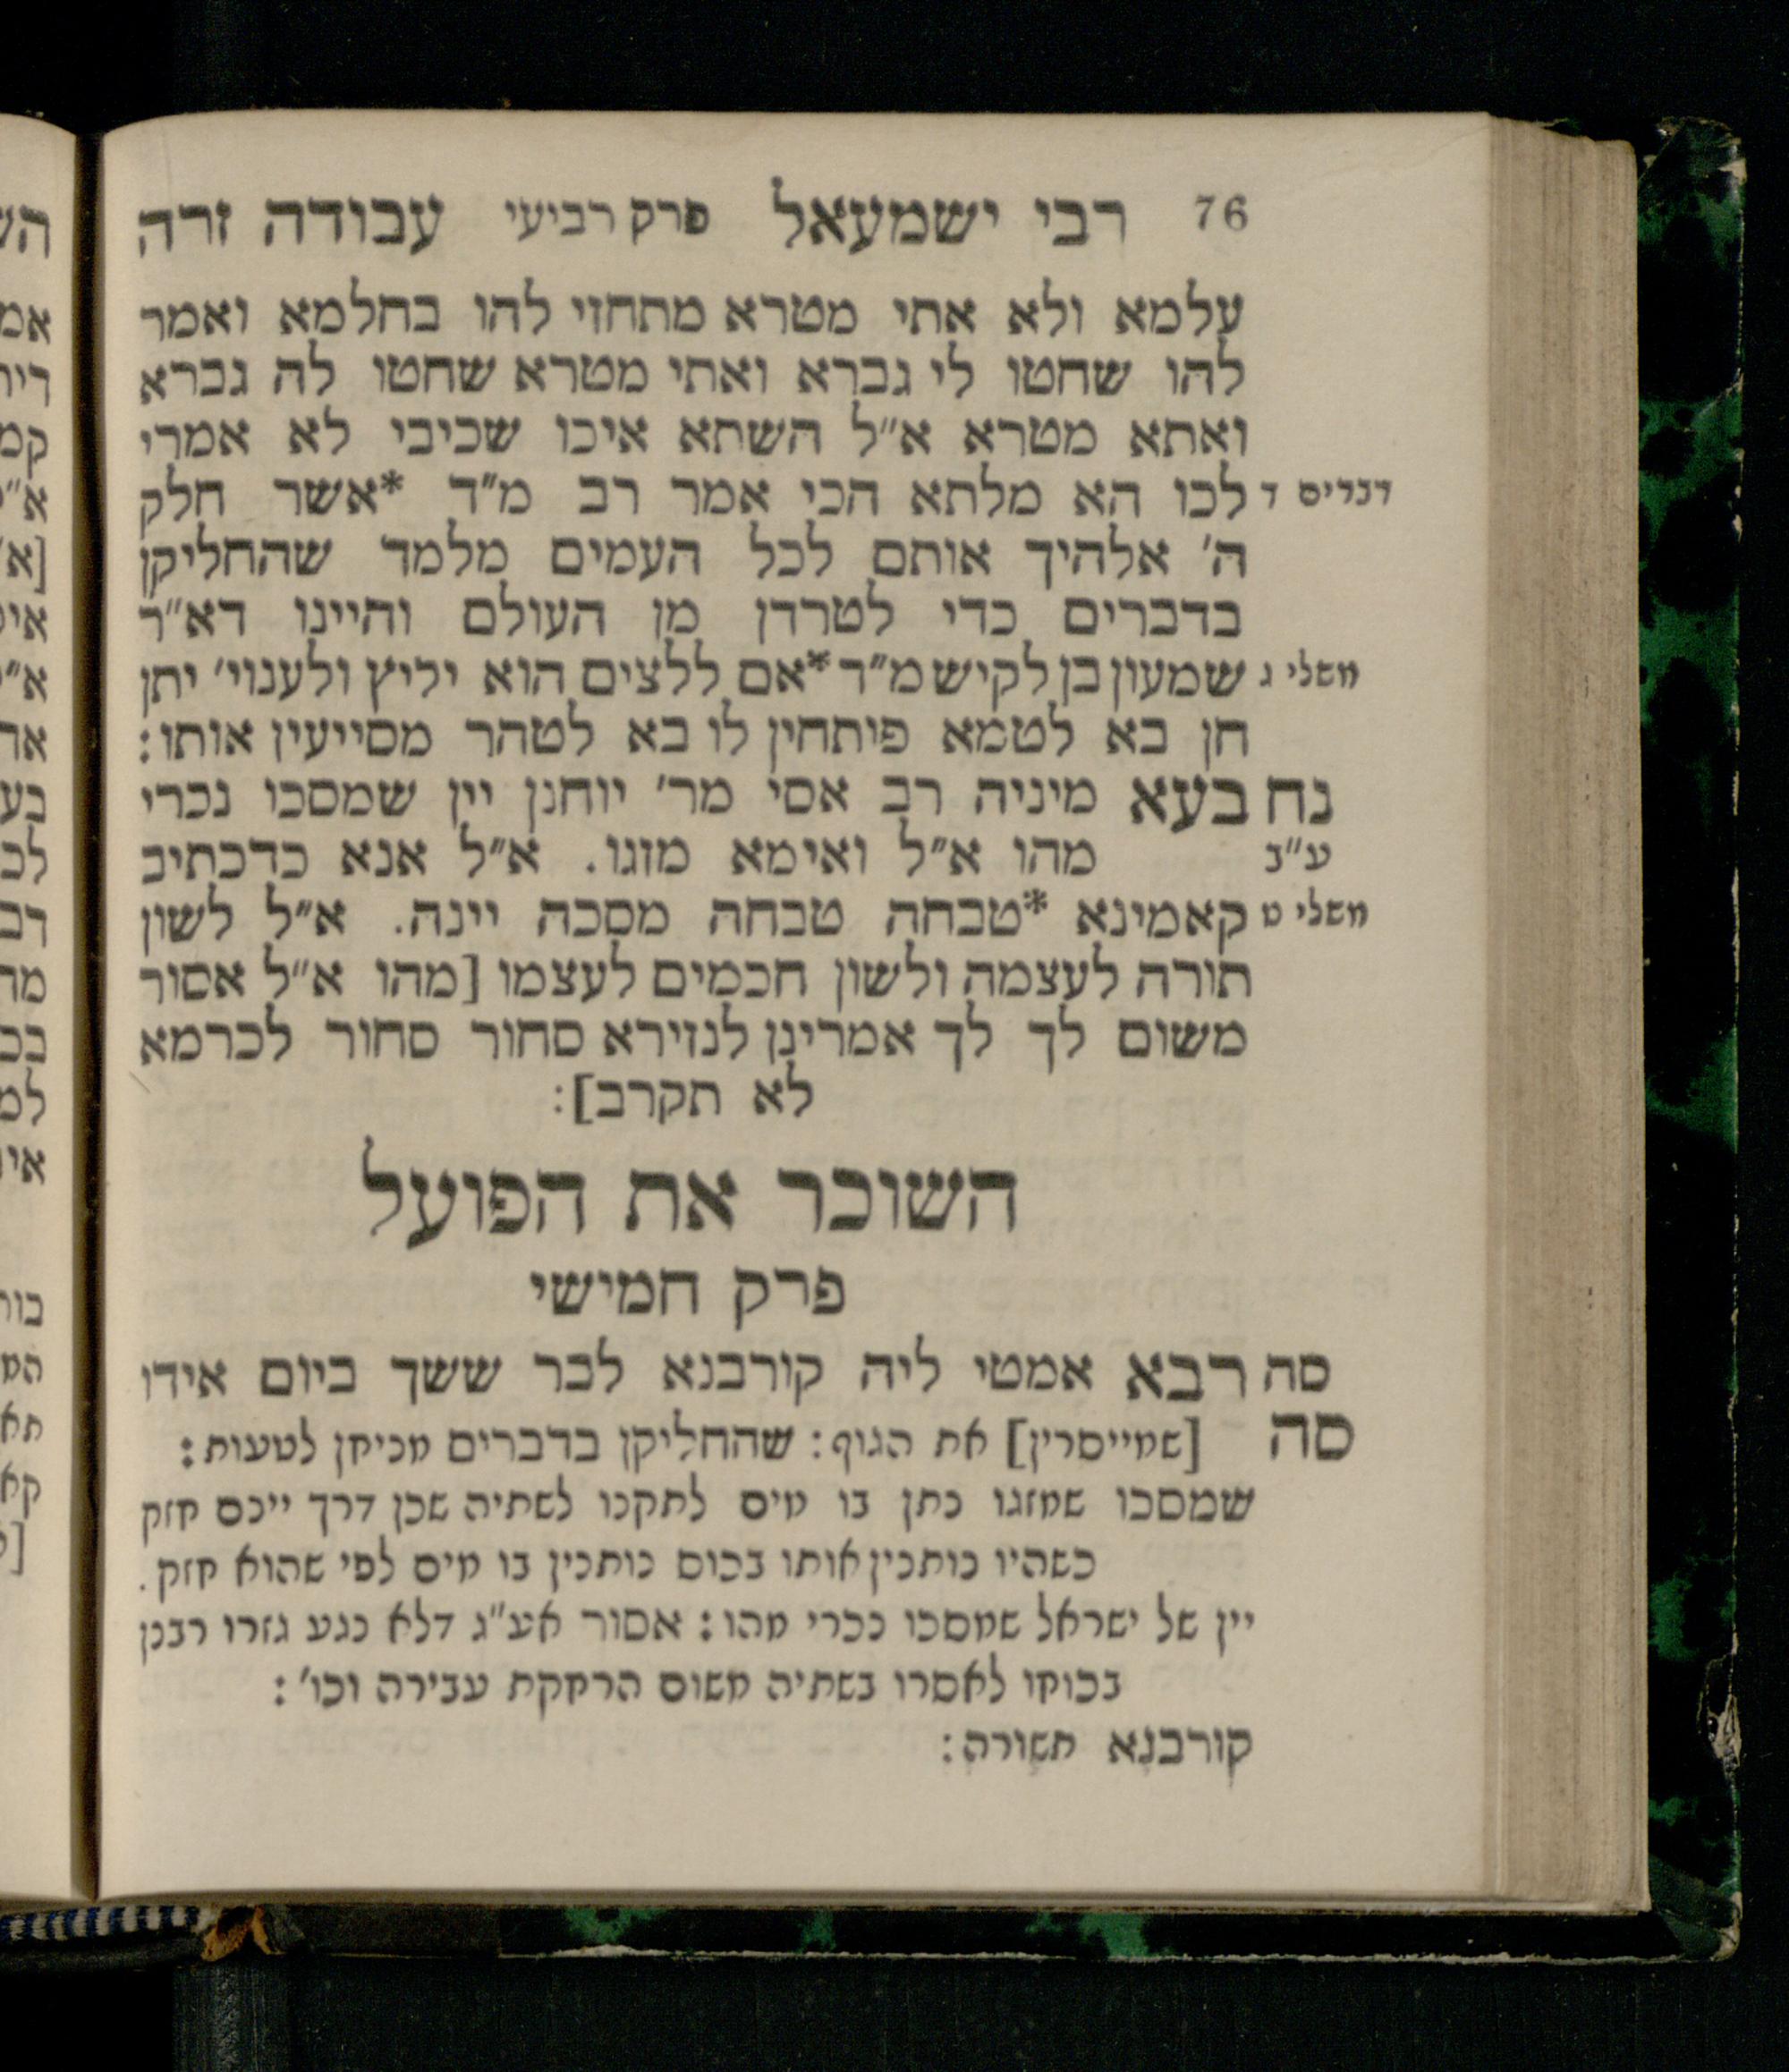 76 רבי ישמעאל פרק רביעי עבודה זרה
עלמא ולא אתי מטרא מתחזי להו בחלמא ואמר
להו שחטו לי גברא ואתי מטרא שחטו לה גברא
ואתא מטרא א״ל השתא איכו שכיבי לא אמרי
דברים ד לכו הא מלתא הכי אמר רב מ״ד *אשר חלק
ה׳ אלהיך אותם לכל העמים מלמד שהחליקן
בדברים כדי לטרדן מן העולם והיינו דא״ר
משלי ג שמעון בן לקיש מ״ד *אם ללצים הוא יליץ ולענוי׳ יתן
חן בא לטמא פיתחין לו בא לטהר מסייעין אותו:
נח בעא מיניה רב אסי מר׳ יוחנן יין שמסכו נכרי
ע״ב מהו א״ל ואימא מזגו. א״ל אנא כדכתיב
משלי ט קאמינא *טבחה טבחה מסכה יינה. א״ל לשון
תורה לעצמה ולשון חכמים לעצמו [מהו א״ל אסור
משום לך לך אמרינן לנזירא סחור סחור לכרמא
לא תקרב]:
השוכר את הפועל
פרק חמישי
סה רבא אמטי ליה קורבנא לבר ששך ביום אידו
סה [שמייסרין] את הגוף: שהחליקן בדברים מכיתן לטעות:
שמסכו שמזגו נתן בו מים לתקנו לשתיה שכן דרך יינם חזק
כשהיו נותנין אותו בכוס נותנין בו מים לפי שהוא חזק.
יין של ישראל שמסכו נכרי מהו: אסור אע״ג דלא נגע גזרו רבנן
בכוחו לאסרו בשתיה משום הרחקת עבירה וכו׳:
קורבנא תשורה: